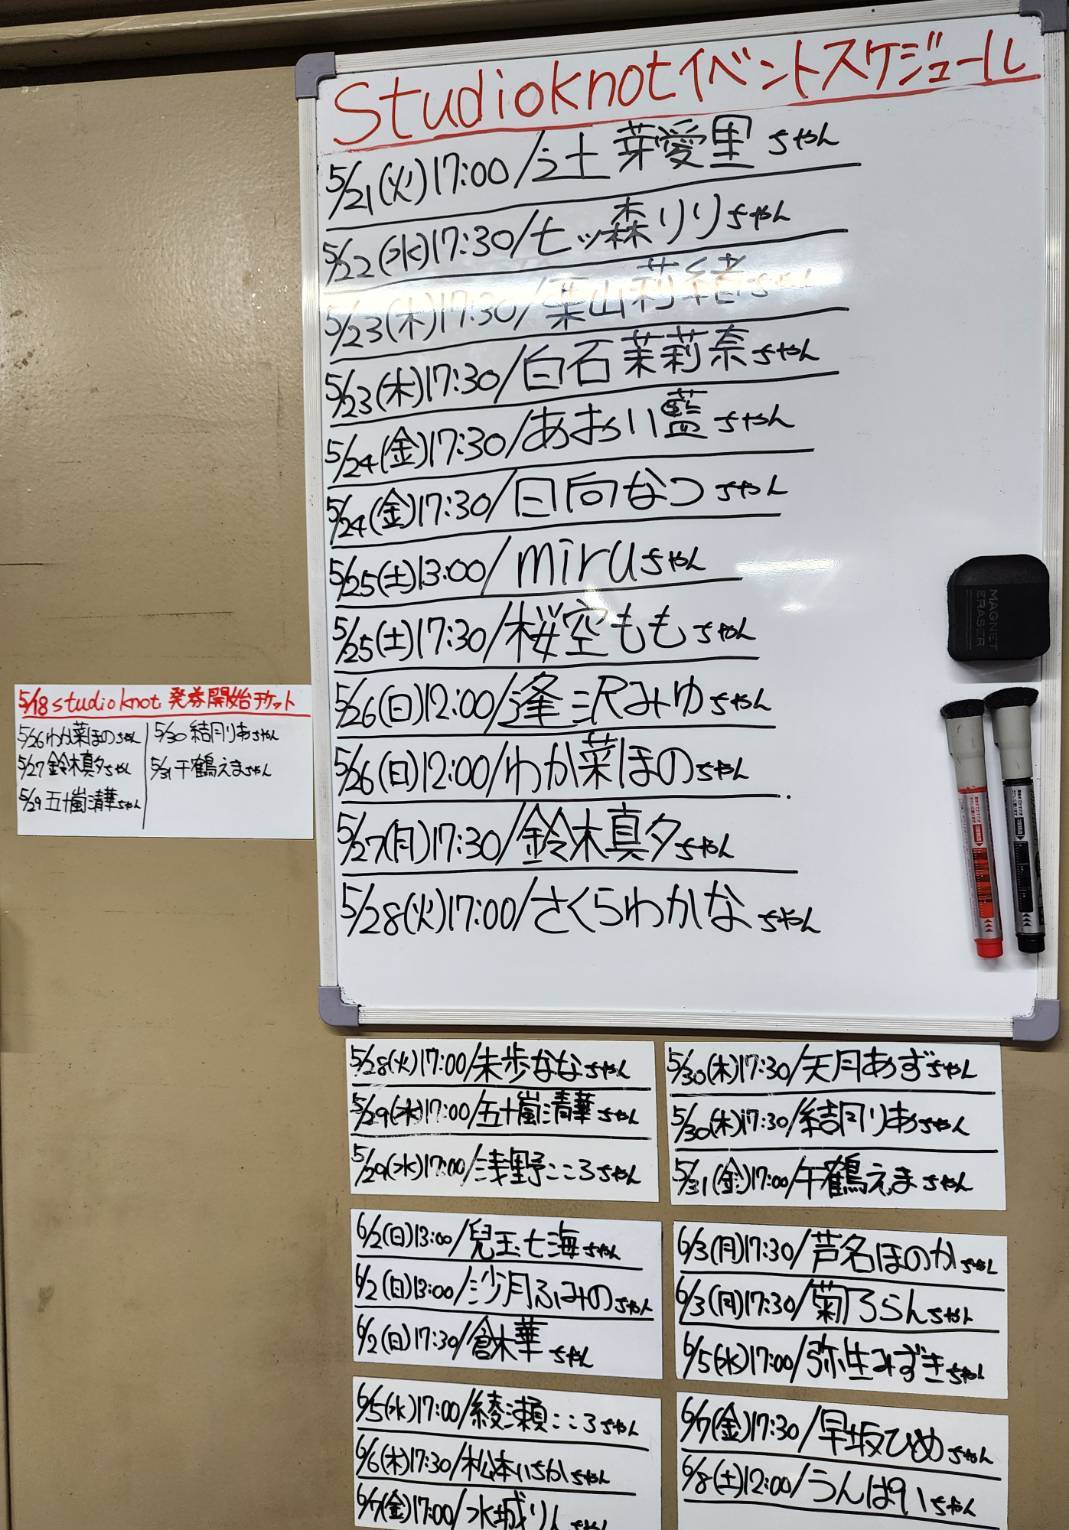 studioknotイベントスケジュール
5/21(火)17:00/辻芽愛里ちゃん
5/22(水)17:30/七ッ森りりちゃん
5/23(木)17:30/葉山莉緒ちゃん
5/23(木)17:30/白石茉莉奈ちゃん
5/24(金)17:30/あおい藍ちゃん
5/24(金)17:30/日向なつちゃん
5/25(土)13:00/miruちゃん
5/25(土)17:30/桜空ももちゃん
5/26(日)12:00/逢沢みゆちゃん
5/26(日)12:00/わか菜ほのちゃん
5/27(月)17:30/鈴木真夕ちゃん
5/28(火)17:00/さくらわかなちゃん
MAGNET
ERASER
5/18 studio knot 発券開始チケット
5/26 わか菜ほのちゃん
5/27 鈴木真夕ちゃん
5/29 五十嵐清華ちゃん
5/30 結月りあちゃん
5/31 千鶴えまちゃん
5/28(火)17:00/朱歩ななちゃん
5/29(水)17:00/五十嵐清華ちゃん
5/29(水)17:00/浅野こころちゃん
5/30(木)17:30/天月あずちゃん
5/30(木)17:30/結月りあちゃん
5/31(金)17:00/千鶴えまちゃん
6/2(日)13:00/兒玉七海ちゃん
6/2(日)13:00/沙月ふみのちゃん
6/2(日)17:30/倉木華ちゃん
6/3(月)17:30/芦名ほのかちゃん
6/3(月)17:30/菊乃らんちゃん
6/5(水)17:00/弥生みずきちゃん
6/5(水)17:00/綾瀬こころちゃん
6/6(木)17:30/松本いちかちゃん
6/7(金)17:00/水城りんちゃん
6/7(金)17:30/早坂ひめちゃん
6/8(土)12:00/うんぱいちゃん